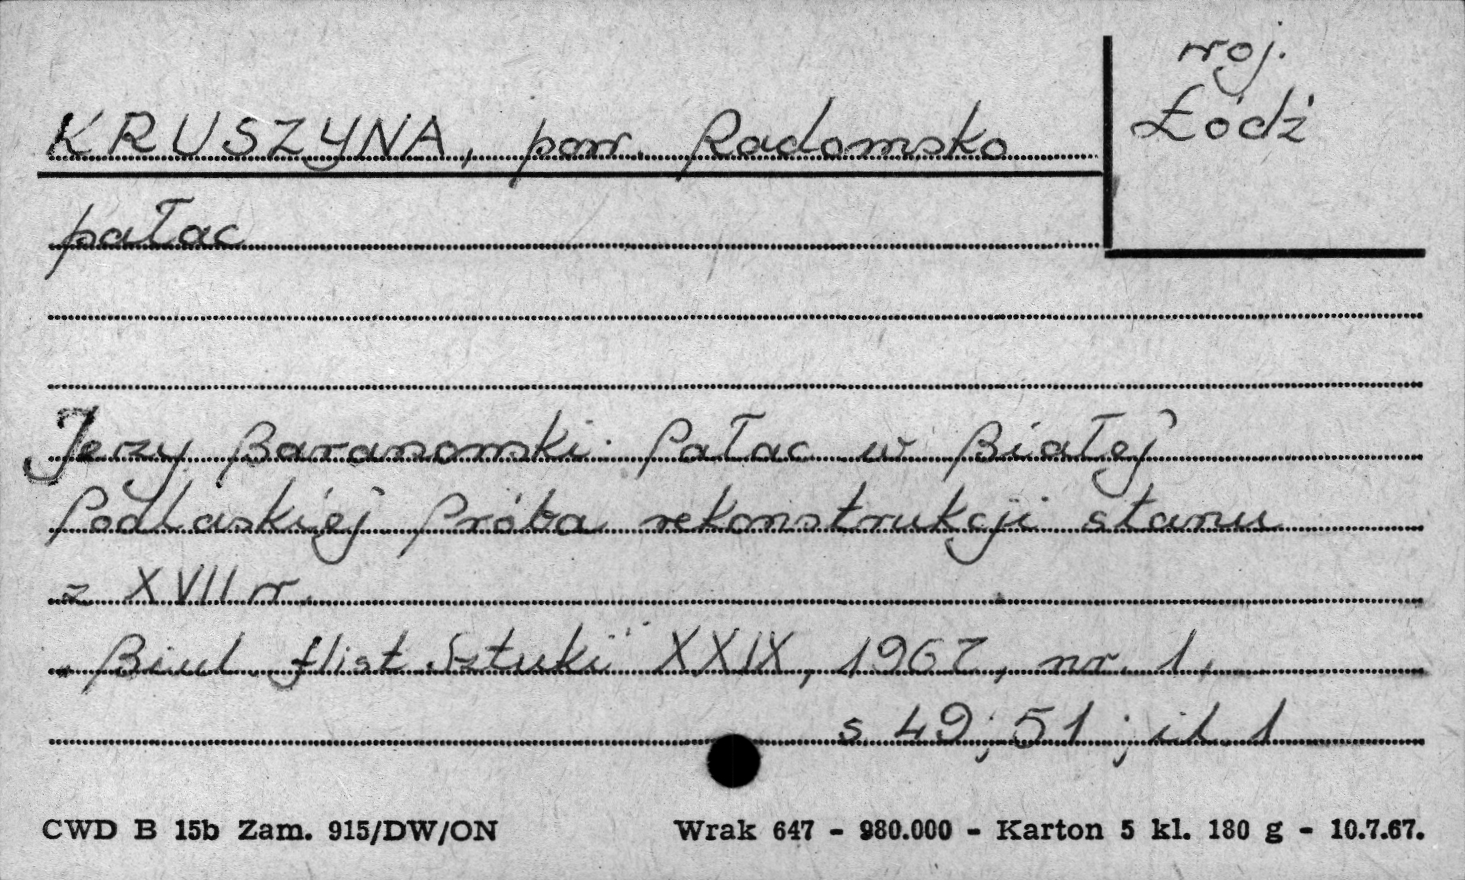 woj.
Łódź
KRUSZYNA, pow. Radomsko
pałac
Jerzy Baranowski: Pałac w Białej
Podlaskiej Próba rekonstrukcji stanu
z XVII w.
„Biul. Hist. Sztuki" XXIX, 1967, nr. 1,
s 49; 51; il. 1
CWD B 15b Zam. 915/DW/ON
Wrak 647 - 980.000 - Karton 5 kl. 180 g - 10.7.67.